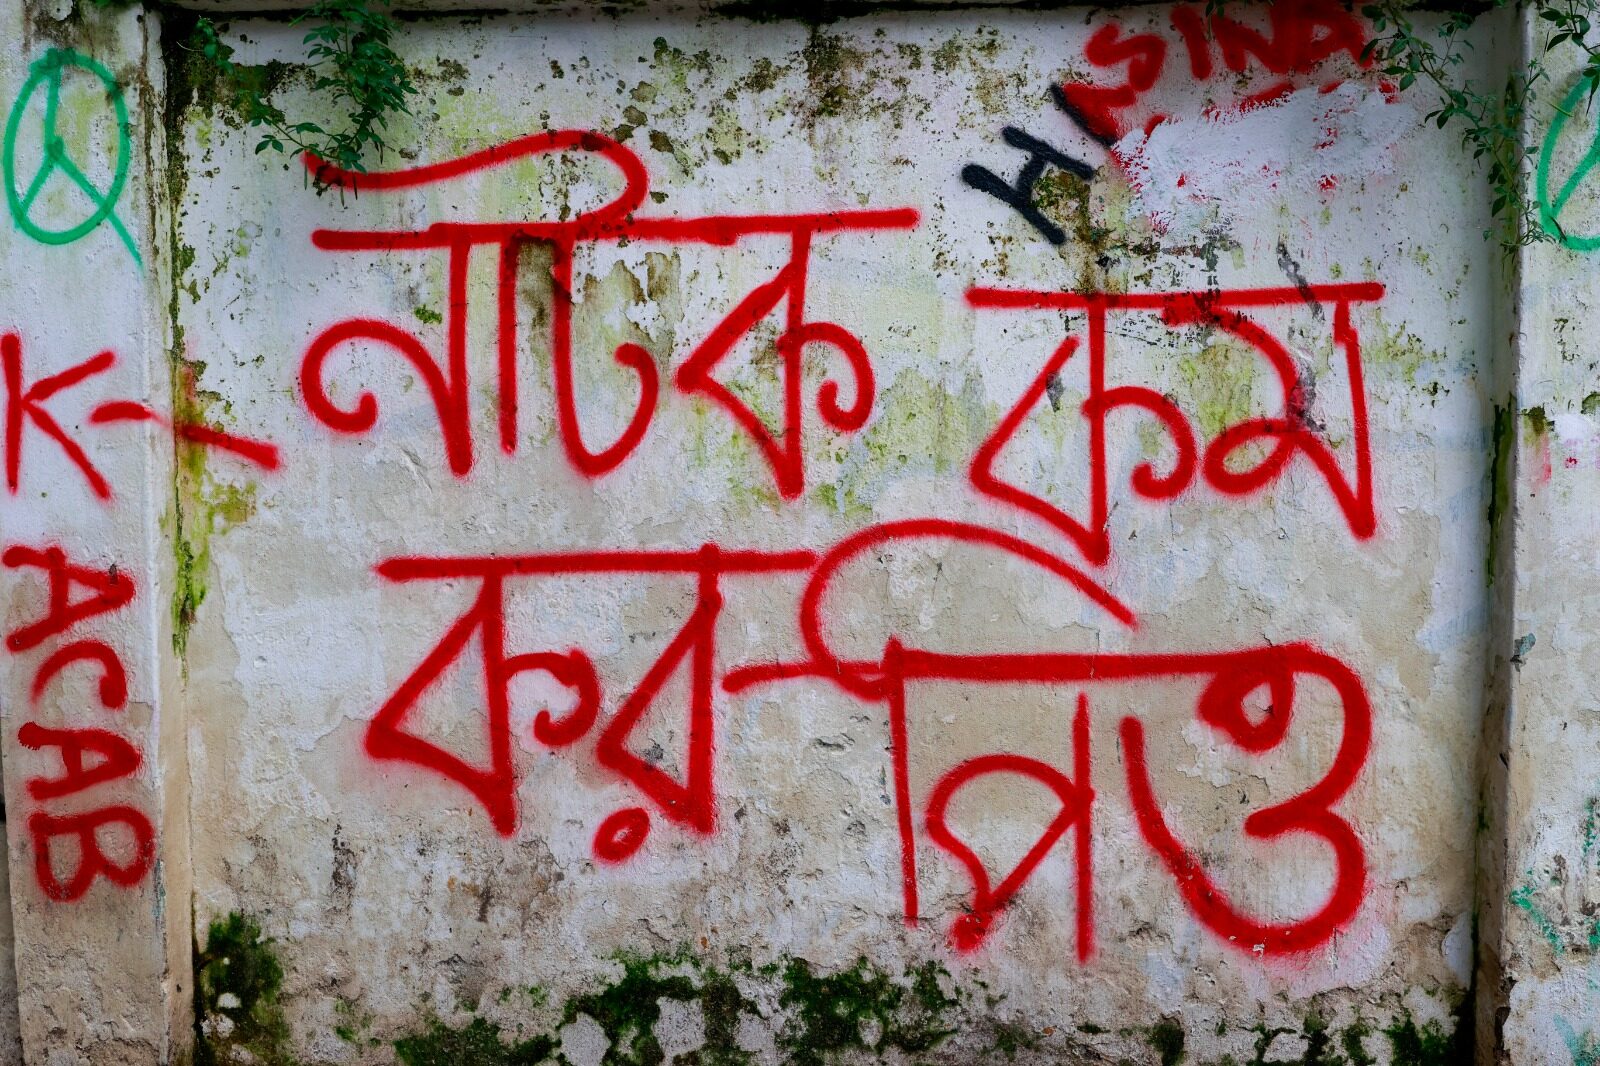 SINA
H
নাটক কম
কর পিও
K
ACAB